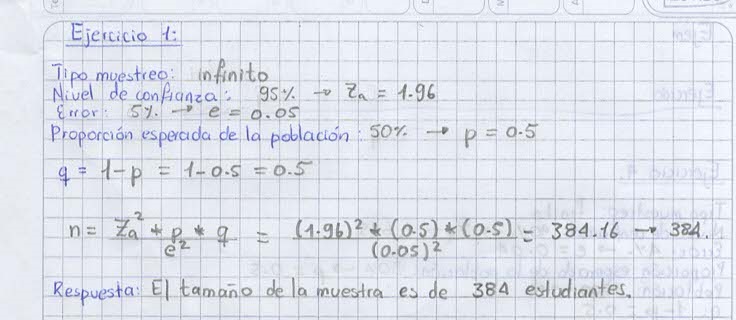 Ejercicio 1:
Tipo muestreo: infinito
Nivel de confianza: 95% → Za = 1.96
Error: 5% → e = 0.05
Proporción esperada de la población: 50% → p = 0.5
q = 1-p = 1-0.5 = 0.5
n = Za² * p * q / e² = (1.96)² * (0.5) * (0.5) / (0.05)² = 384.16 → 384.
Respuesta: El tamaño de la muestra es de 384 estudiantes.